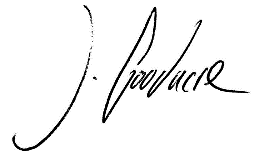 J. Goodacre